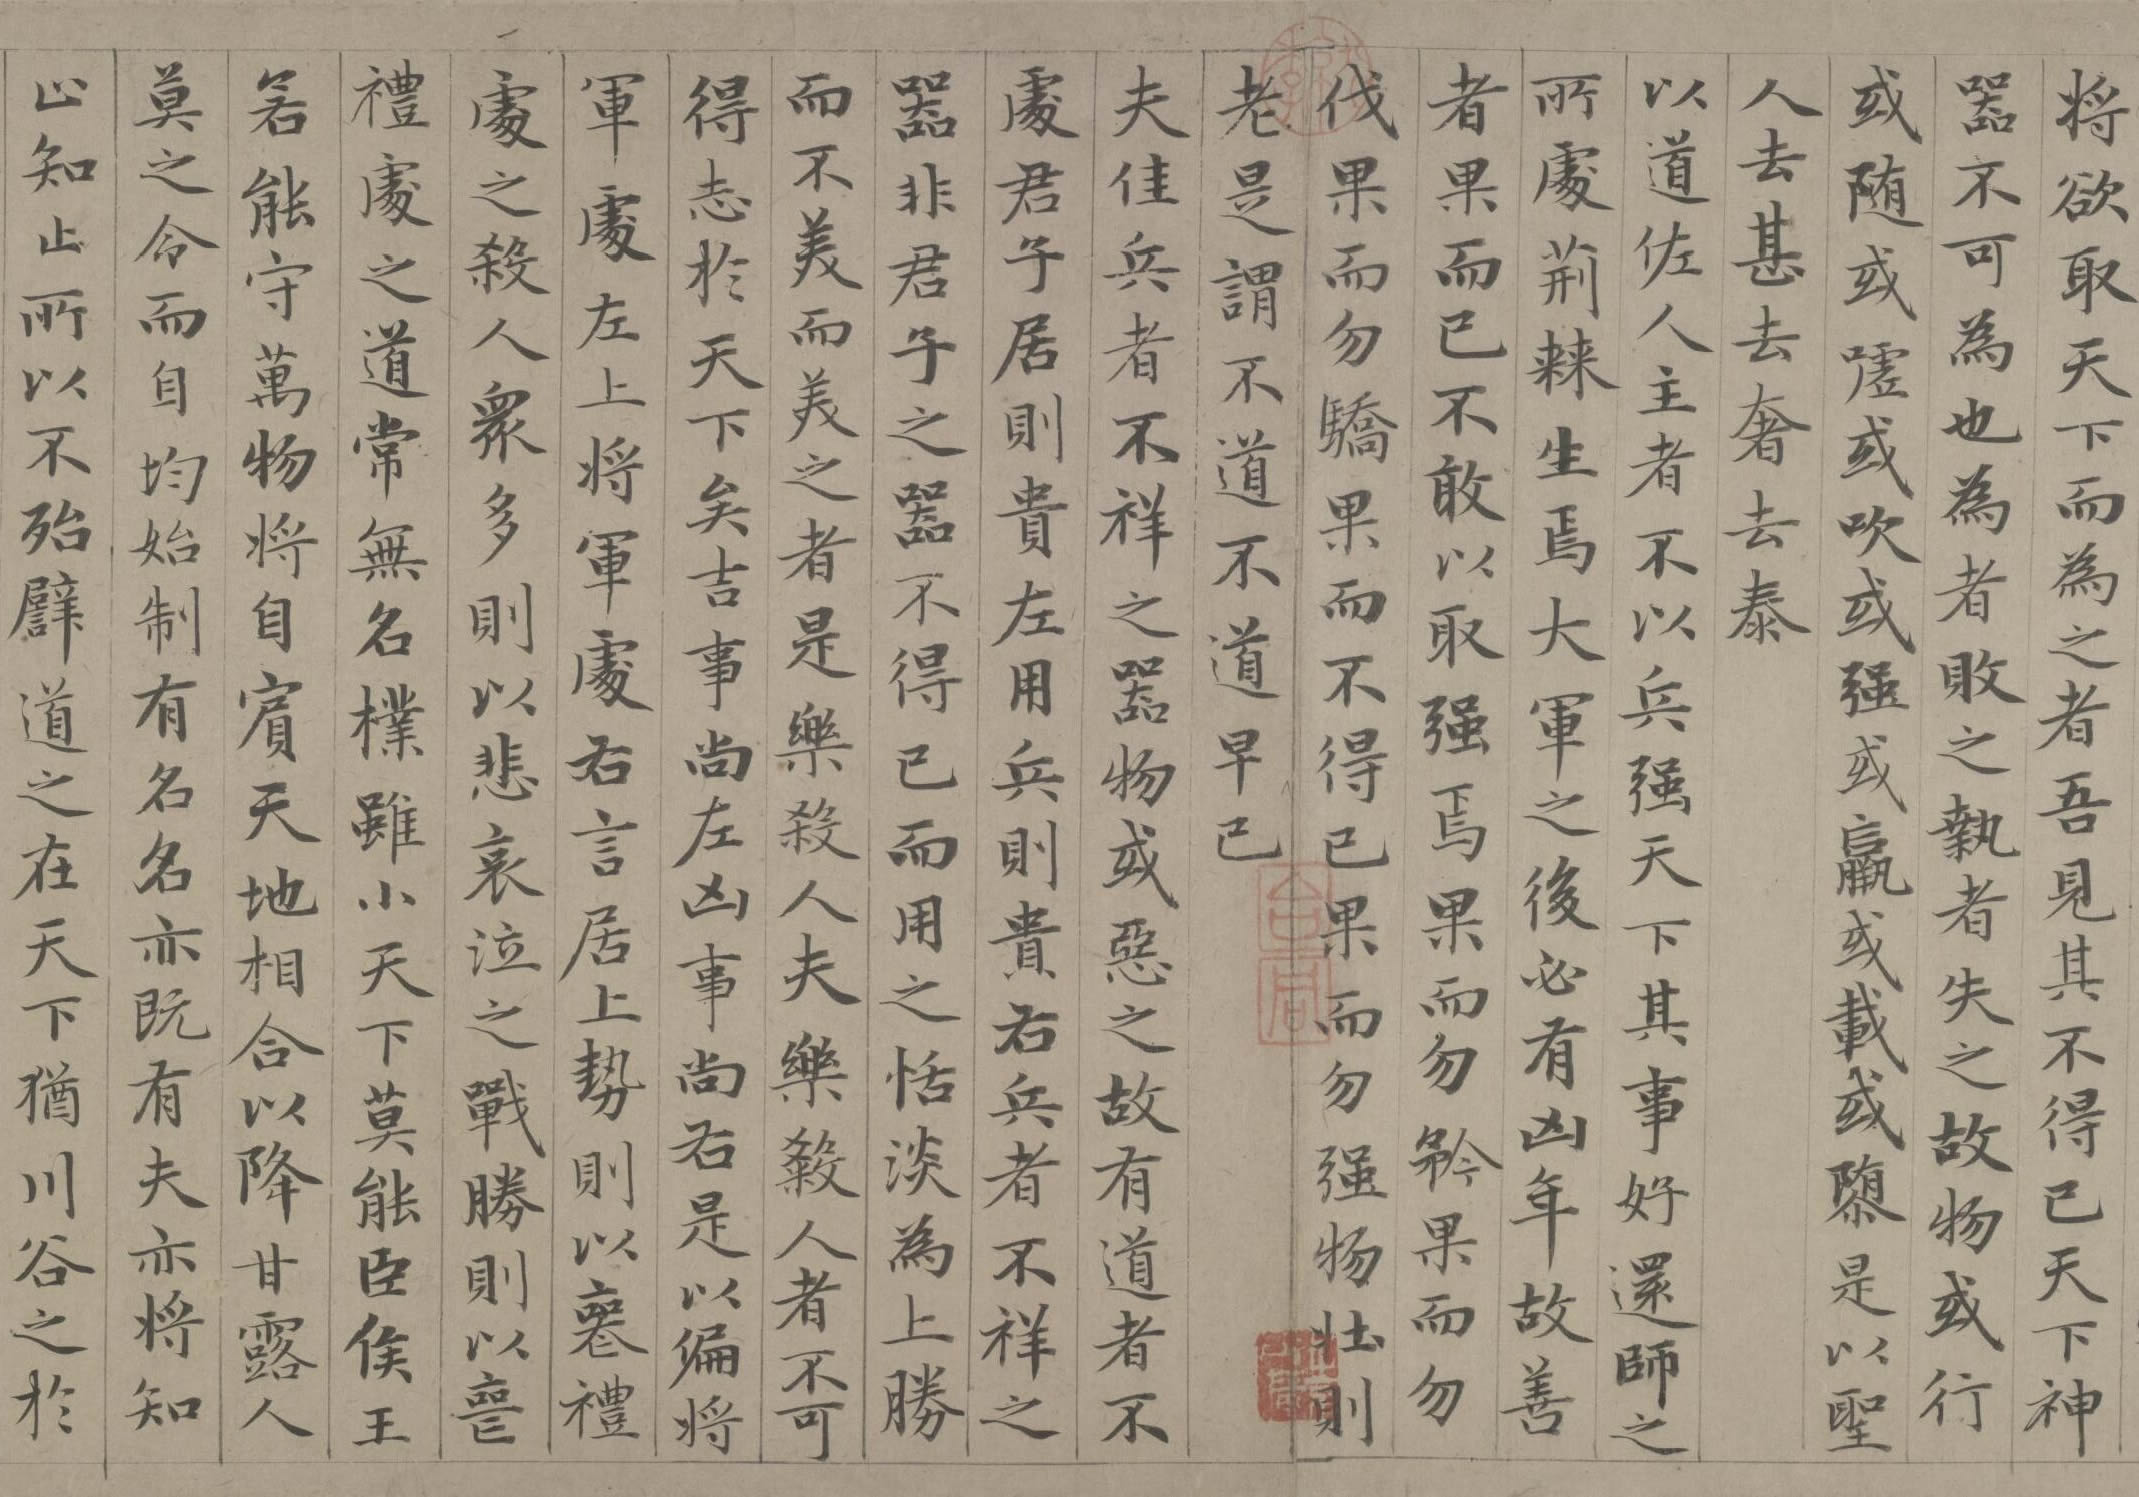 將欲取天下而為之者吾見其不得已天下神
器不可為也為者敗之執者失之故物或行
或隨或噓或吹或强或羸或載或隳是以聖
人去甚去奢去泰
以道佐人主者不以兵强天下其事好還師之
所處荊棘生焉大軍之後必有凶年故善
者果而已不敢以取强焉果而勿矜果而勿
伐果而勿驕果而不得已果而勿强物壯則
老是謂不道不道早已
夫佳兵者不祥之器物或惡之故有道者不
處君子居則貴左用兵則貴右兵者不祥之
器非君子之器不得已而用之恬淡為上勝
而不美而美之者是樂殺人夫樂殺人者不可
得志於天下矣吉事尚左凶事尚右是以偏將
軍處左上將軍處右言居上勢則以喪禮
處之殺人衆多則以悲哀泣之戰勝則以喪
禮處之道常無名樸雖小天下莫能臣侯王
若能守萬物將自賓天地相合以降甘露人
莫之令而自均始制有名名亦既有夫亦將知
止知止所以不殆譬道之在天下猶川谷之於